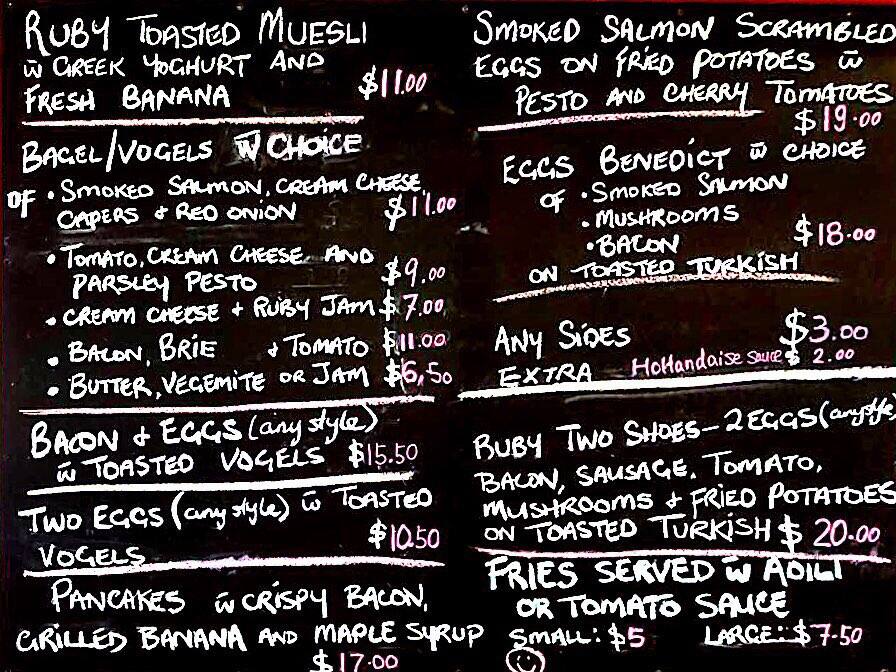 RUBY TOASTED MUESLI
w̄ GREEK YOGHURT AND
FRESH BANANA $11.00
BAGEL/VOGELS w̄ CHOICE
OF • SMOKED SALMON, CREAM CHEESE,
CAPERS & RED ONION $11.00
• TOMATO, CREAM CHEESE AND
PARSLEY PESTO $9.00
• CREAM CHEESE + RUBY JAM $7.00
• BACON, BRIE & TOMATO $11.00
• BUTTER, VEGEMITE OR JAM $6.50
BACON & EGGS (any style)
w̄ TOASTED VOGELS $15.50
TWO EGGS (any style) w̄ TOASTED
VOGELS $10.50
PANCAKES w̄ CRISPY BACON,
GRILLED BANANA AND MAPLE SYRUP
$17.00
SMOKED SALMON SCRAMBLED
EGGS ON FRIED POTATOES w̄
PESTO AND CHERRY TOMATOES
$19.00
EGGS BENEDICT w̄ CHOICE
OF • SMOKED SALMON
• MUSHROOMS
• BACON $18.00
ON TOASTED TURKISH
ANY SIDES $3.00
EXTRA Hollandaise sauce $2.00
RUBY TWO SHOES - 2 EGGS (any style)
BACON, SAUSAGE, TOMATO,
MUSHROOMS & FRIED POTATOES
ON TOASTED TURKISH $20.00
FRIES SERVED w̄ AOILI
OR TOMATO SAUCE
SMALL: $5 LARGE: $7.50